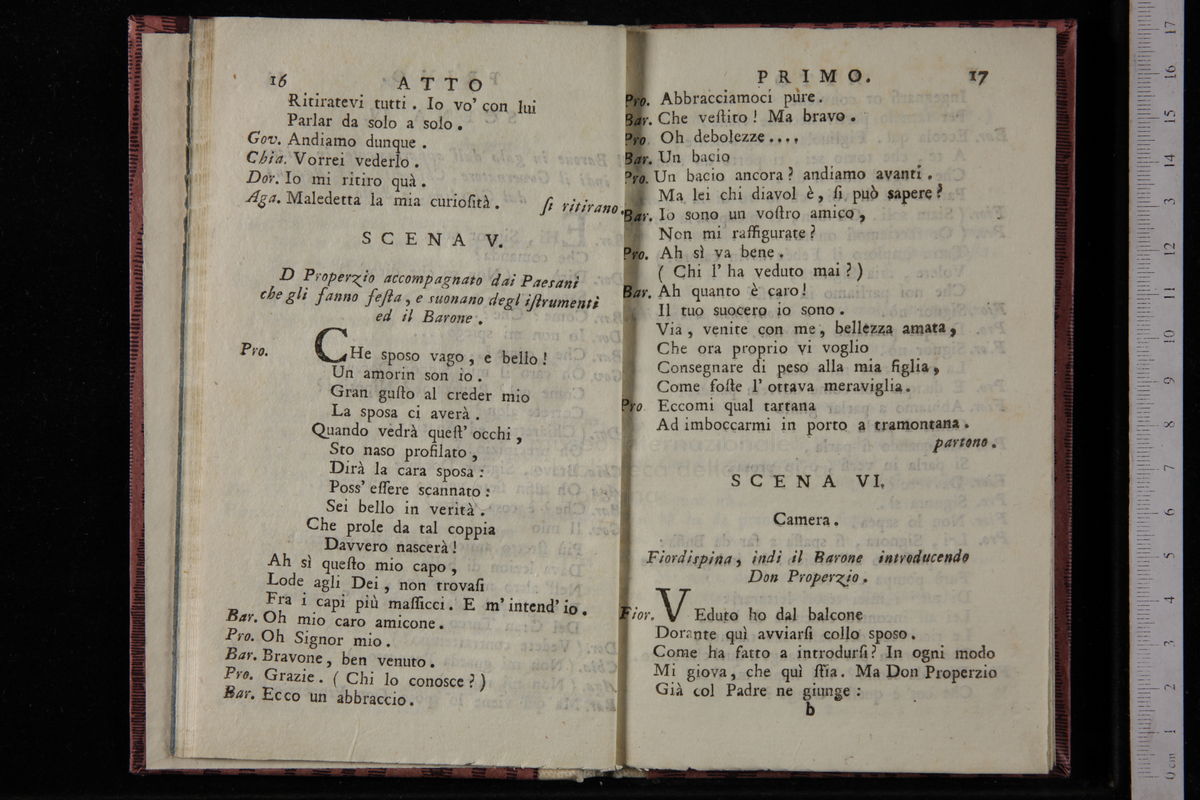 16 ATTO
Ritiratevi tutti. Io vo' con lui
Parlar da solo a solo.
Gov. Andiamo dunque.
Chia. Vorrei vederlo.
Dor. Io mi ritiro quà.
Aga. Maledetta la mia curioſità. ſi ritirano.
SCENA V.
D Properzio accompagnato dai Paesani
che gli fanno feſta, e suonano degl' iſtrumenti
ed il Barone.
Pro. CHe sposo vago, e bello!
Un amorin son io.
Gran guſto al creder mio
La sposa ci averà.
Quando vedrà queſt' occhi,
Sto naso profilato,
Dirà la cara sposa:
Poss' eſſere scannato:
Sei bello in verità.
Che prole da tal coppia
Davvero nascerà!
Ah sì queſto mio capo,
Lode agli Dei, non trovaſi
Fra i capi più maſſicci. E m' intend' io.
Bar. Oh mio caro amicone.
Pro. Oh Signor mio.
Bar. Bravone, ben venuto.
Pro. Grazie. (Chi lo conosce?)
Bar. Ecco un abbraccio.
PRIMO. 17
Pro. Abbracciamoci pure.
Bar. Che veſtito! Ma bravo.
Pro. Oh debolezze....
Bar. Un bacio
Pro. Un bacio ancora? andiamo avanti.
Ma lei chi diavol è, ſi può sapere?
Bar. Io sono un voſtro amico,
Non mi raffigurate?
Pro. Ah sì va bene.
(Chi l' ha veduto mai?)
Bar. Ah quanto è caro!
Il tuo suocero io sono.
Via, venite con me, bellezza amata,
Che ora proprio vi voglio
Consegnare di peso alla mia figlia,
Come foſte l' ottava meraviglia.
Pro Eccomi qual tartana
Ad imboccarmi in porto a tramontana.
partono.
SCENA VI.
Camera.
Fiordispina, indi il Barone introducendo
Don Properzio.
Fior. VEduto ho dal balcone
Dorante quì avviarſi collo sposo.
Come ha fatto a introdurſi? In ogni modo
Mi giova, che quì ſtia. Ma Don Properzio
Già col Padre ne giunge:
b